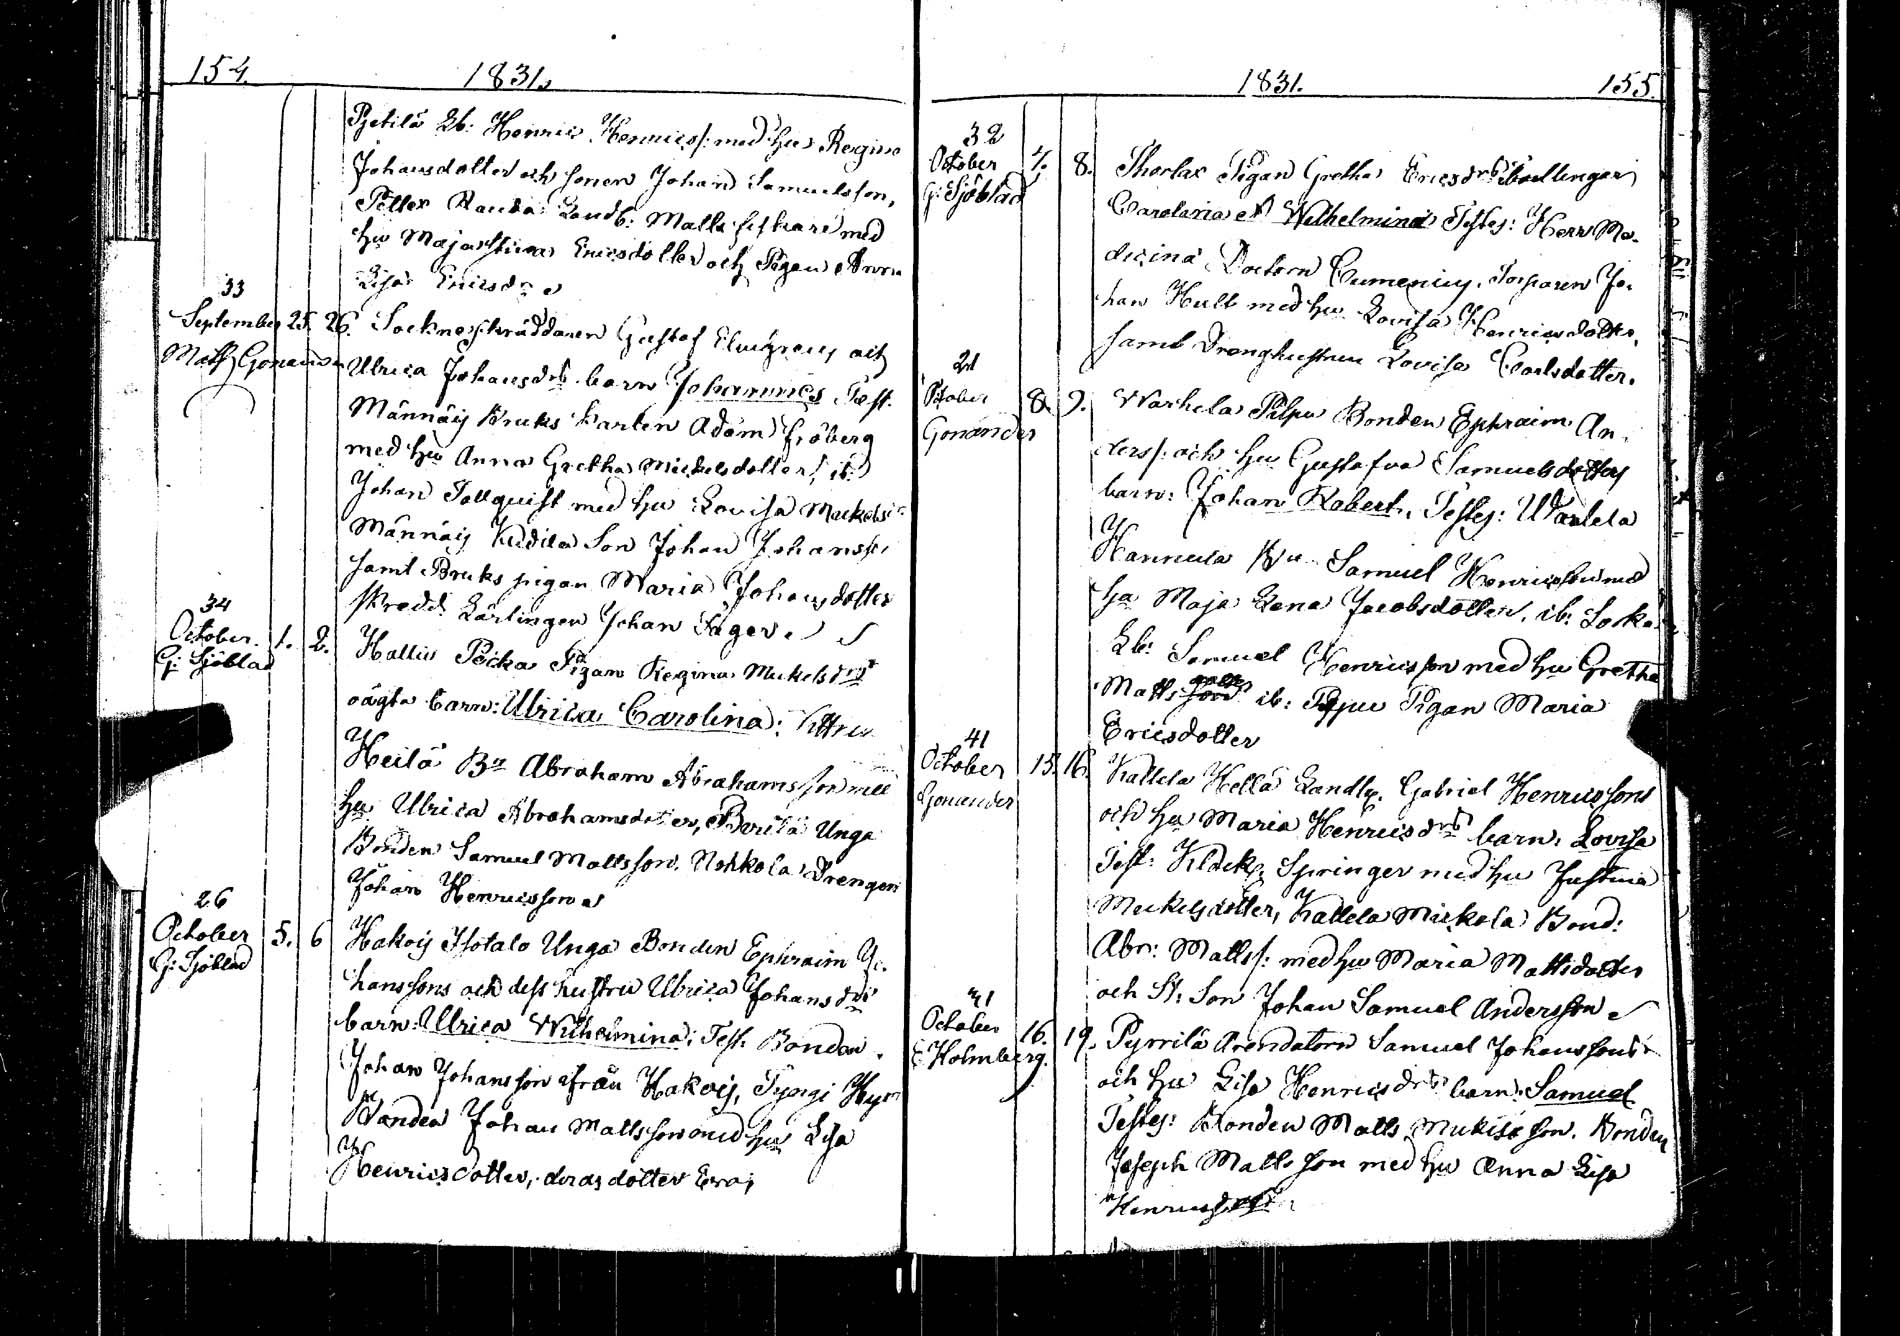 154.
1831.
Pjetilä Lb: Henric Henrics/: med hu Regina
Johansdotter och sonen Johan Samuelsson,
Petter Rauda: Landb: Matts med
hu Maja Stina Ericsdotter och Pigan Anna
Lisa Ericsdr
33
September 25. 26. Sockneskräddaren Gustaf Elmgrens och
Math Gonander
Ulrica Johansdrs barn Johannes Test.
Männäis Bruks Karlen Adam Fröberg
med hu Anna Gretha Mickelsdotter, ib:
Johan Tollquist med hu Lovisa Mickelsdr
Männäis Kidila Son Johan Johanss/:
samt Bruks pigan Maria Johansdotter
Skredd. Lärlingen Johan Fager
34
October 1. 2. Hallus Pecka Pigan Regina Mickelsdrs
G: Sjöblad
oägta barn: Ulrica Carolina: Vittnen
Heilä Bn Abraham Abrahamsson med
hu Ulrica Abrahamsdotter, Perilä Unga
Bonden Samuel Mattsson. Nokkola Drengen
Johan Henricsson
26
October 5. 6 Hakois Isotalo Unga Bonden Ephraim Jo-
G: Sjöblad
hanssons och dess hustru Ulrica Johansdrs
barn: Ulrica Wilhelmina; Test. Bonden
Johan Johansson från Hakois, Tyrgi Hyr
Bonden Johan Mattsson med hu Lisa
Henricsdotter, deras dotter Eva;
1831.
155.
32
October 7. 8. Thorlax Pigan Gretha Ericsdrs tvillingar
G: Sjöblad
Carolaria et Wilhelmina Testes: Herr Me-
dicinä Doctorn Cumenius, Torparen Jo-
han Hult med hu Lovisa Henricsdotter,
samt Drenghustrun Lovisa Carlsdotter.
21
October 8. 9. Warhela Pilpu Bonden Ephraim An-
Gonander
ders/: och hu Gustafva Samuelsdotters
barn: Johan Robert. Testes: Warhela
Hannula Bn Samuel Henricsson med
hu Maja Lena Jacobsdotter, ib: Sorka
Lb: Samuel Henricsson med hu Gretha
Matts dotter ib: Pilpu Pigan Maria
Ericsdotter
41
October 15. 16. Kallela Kella Landb. Gabriel Henricssons
Gonander
och hu Maria Henricsdrs barn: Lovisa
Test: Klock. Springer med hu Justina
Mickelsdotter, Kallela Mickola Bond:
Abr: Matts/: med hu Maria Mattsdotter
och St: Son Johan Samuel Andersson
41
October 16. 19. Pyrrilä Arendatorn Samuel Johanssons
E Holmberg.
och hu Lisa Henricsdrs barn: Samuel
Testes: Bonden Matts Mickelsson. Bonden
Joseph Mattsson med hu Anna Lisa
Henricsdotter